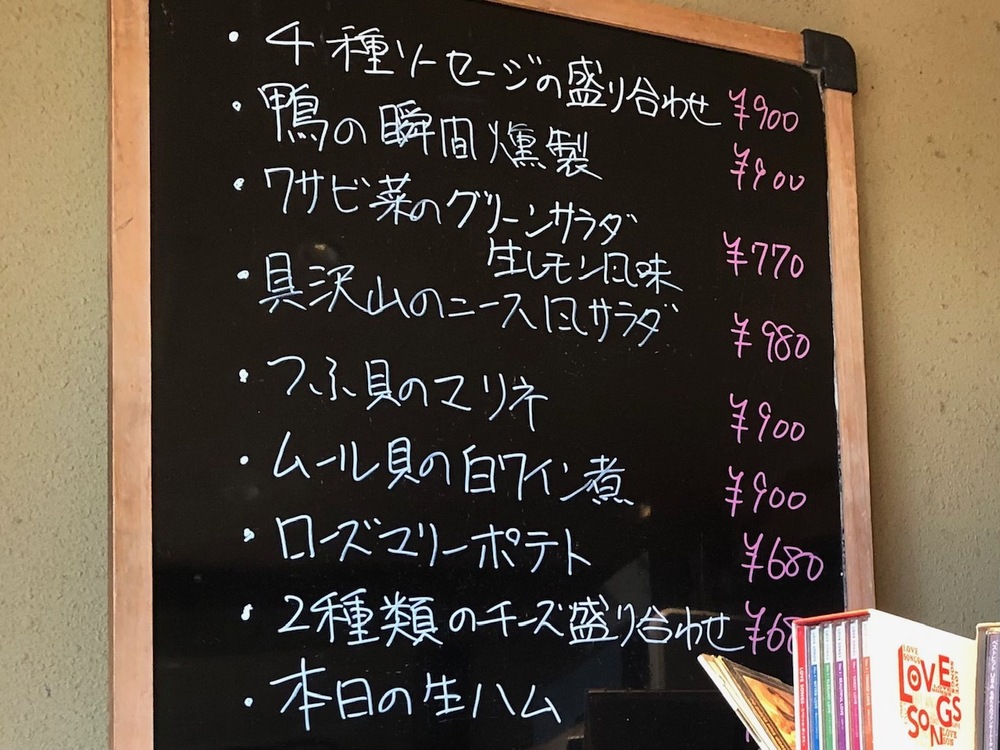 ・4種ソーセージの盛り合わせ ¥900
・鴨の瞬間燻製 ¥900
・ワサビ菜のグリーンサラダ
生レモン風味 ¥770
・具沢山のニース風サラダ ¥980
・つぶ貝のマリネ ¥900
・ムール貝の白ワイン煮 ¥900
・ローズマリーポテト ¥680
・2種類のチーズ盛り合わせ ¥68
・本日の生ハム
LOVE SONGS